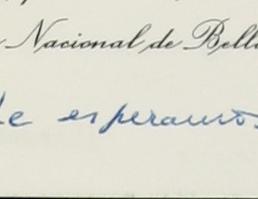 Nacional de Bell
le esperamos